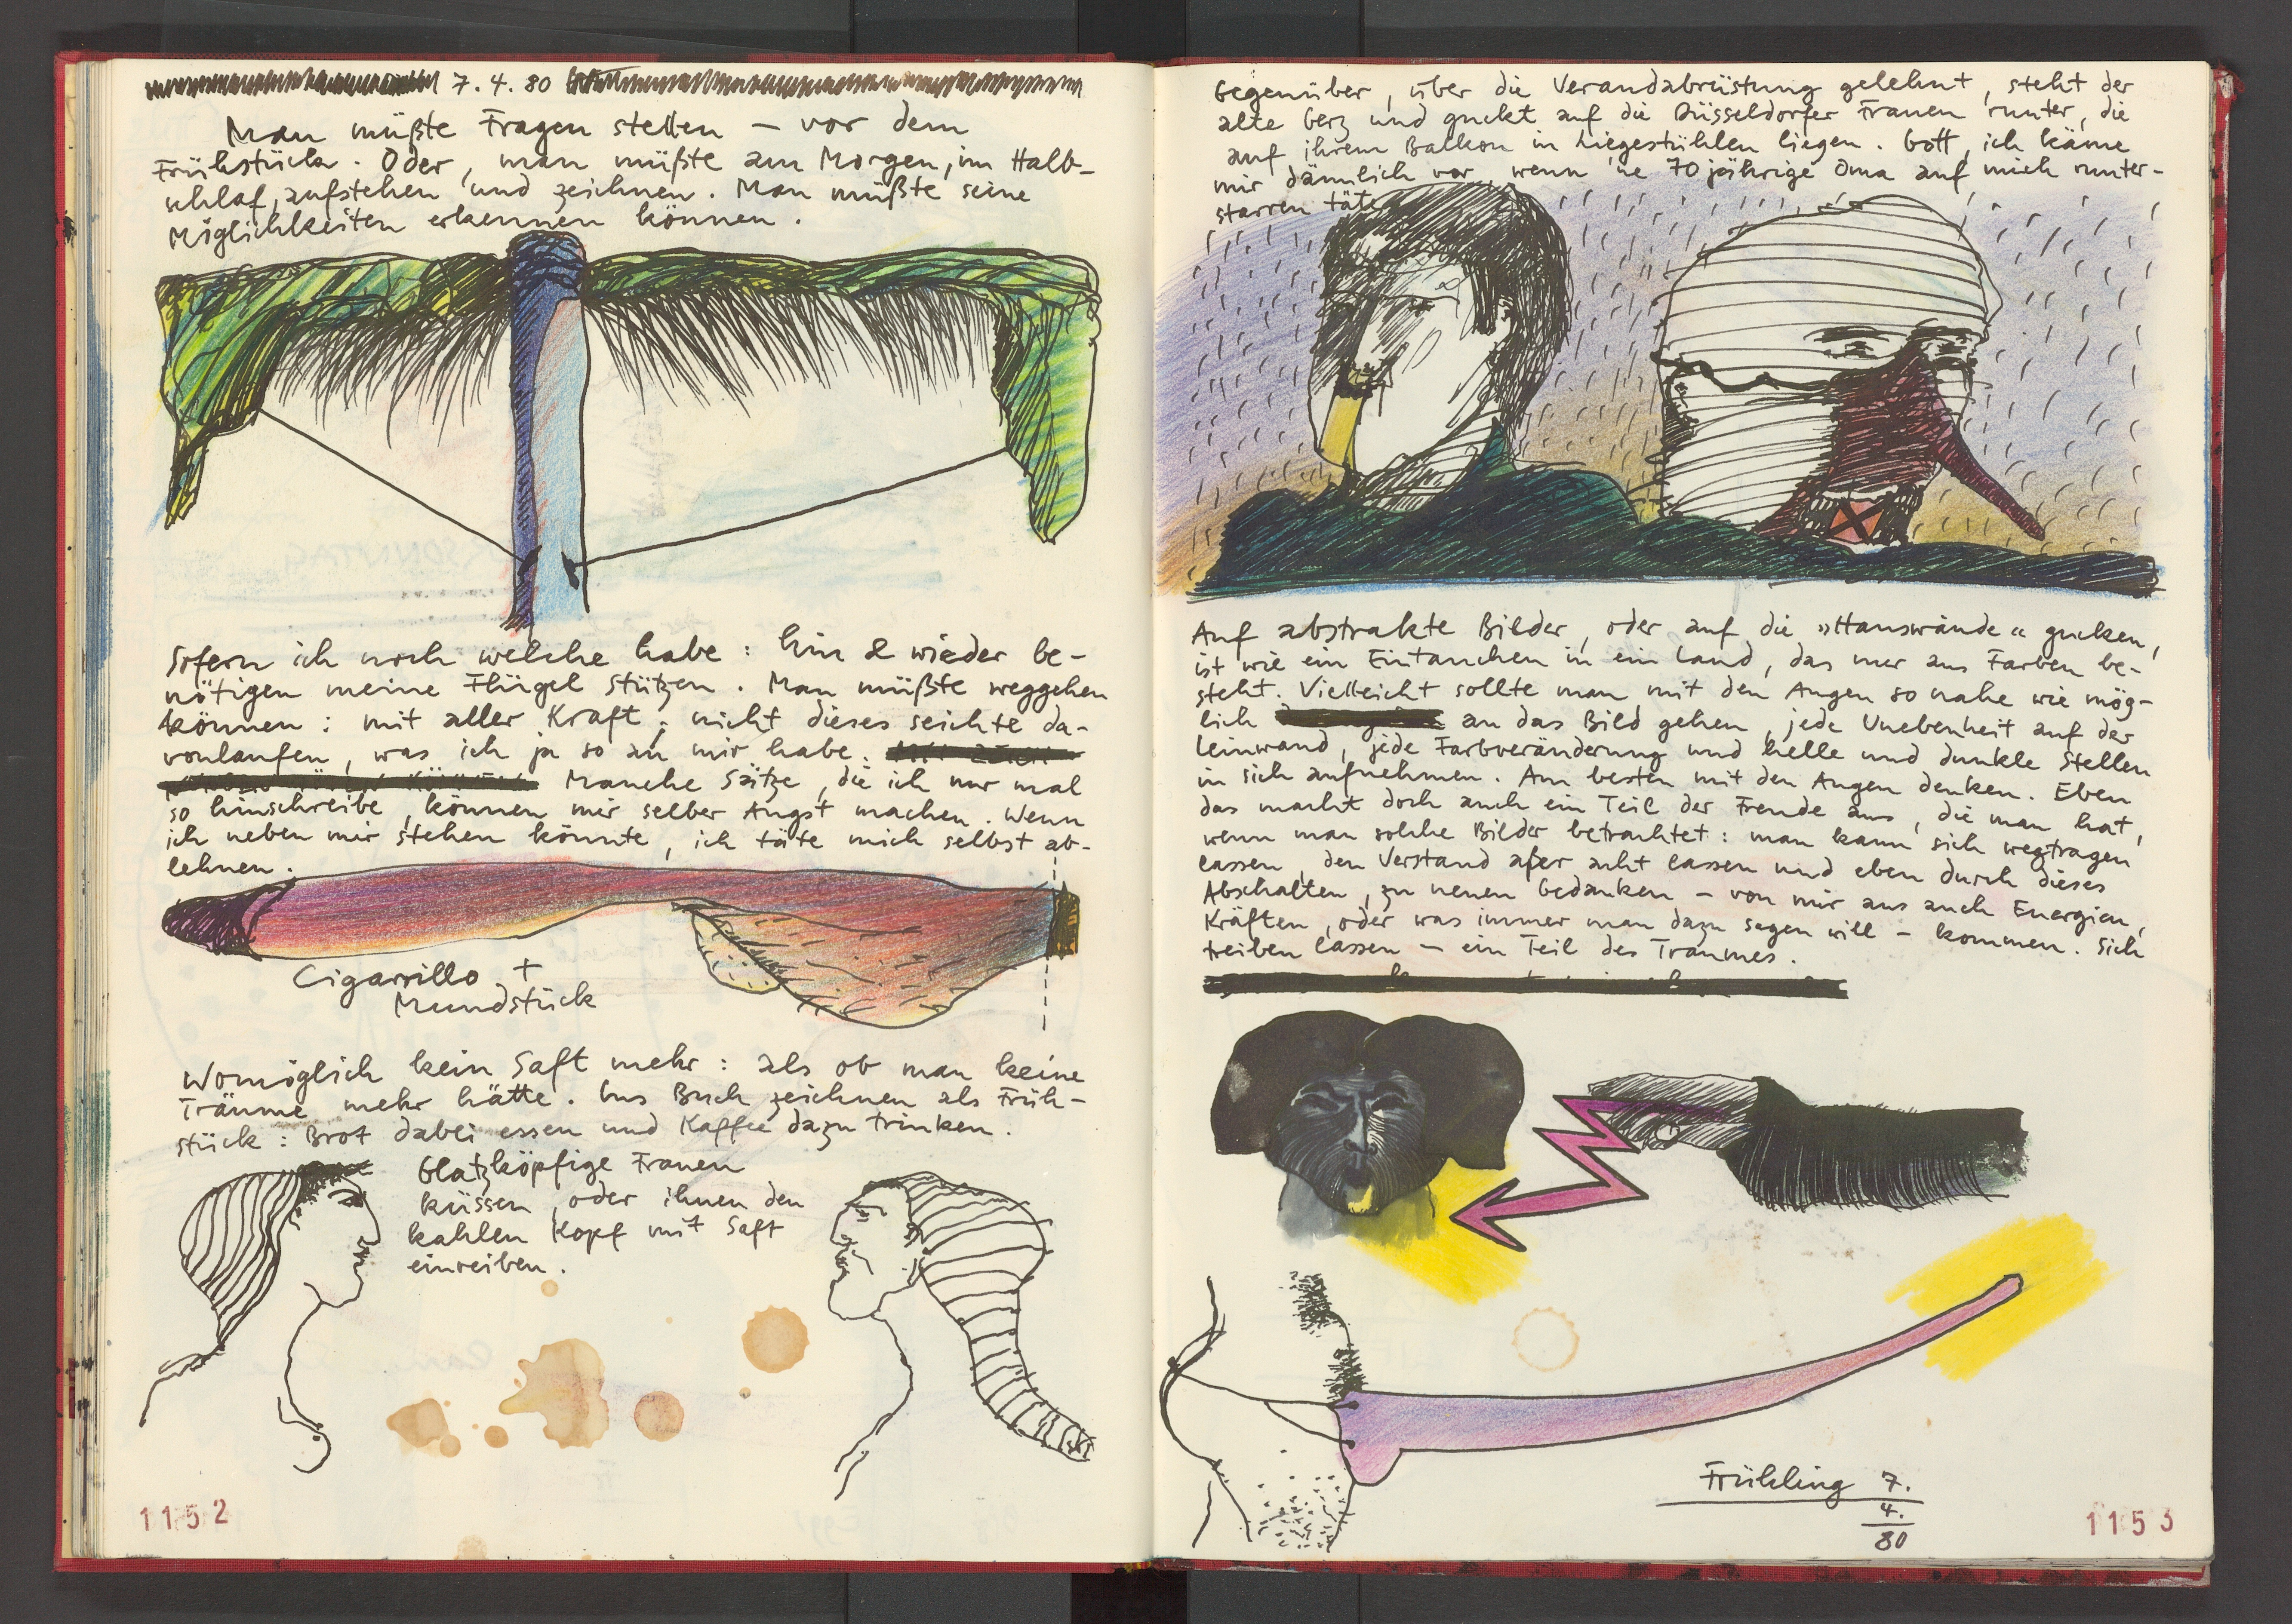 7. 4. 80
Man müßte Fragen stellen – vor dem
Frühstück. Oder, man müßte am Morgen, im Halb-
schlaf, aufstehen und zeichnen. Man müßte seine
Möglichkeiten erkennen können.
Sofern ich noch welche habe: hin & wieder be-
nötigen meine Flügel Stützen. Man müßte weggehen
können: mit aller Kraft; nicht dieses seichte da-
vonlaufen, was ich ja so an mir habe.
Manche Sätze, die ich nur mal
so hinschreibe, können mir selber Angst machen. Wenn
ich neben mir stehen könnte, ich täte mich selbst ab-
lehnen.
Cigarrillo +
Mundstück
Womöglich kein Saft mehr: als ob man keine
Träume mehr hätte. Ins Buch zeichnen als Früh-
stück: Brot dabei essen und Kaffee dazu trinken.
Glatzköpfige Frauen
küssen, oder ihnen den
kahlen Kopf mit Saft
einreiben.
1152
Gegenüber, über die Verandabrüstung gelehnt, steht der
alte Gerz und guckt auf die Düsseldorfer Frauen runter, die
auf ihrem Balkon in Liegestühlen liegen. Gott, ich käme
mir dämlich vor, wenn 'ne 70jährige Oma auf mich runter-
starren täte
Auf abstrakte Bilder, oder auf die »Hauswände« gucken,
ist wie ein Eintauchen in ein Land, das nur aus Farben be-
steht. Vielleicht sollte man mit den Augen so nahe wie mög-
lich an das Bild gehen, jede Unebenheit auf der
Leinwand, jede Farbveränderung und helle und dunkle Stellen
in sich aufnehmen. Am besten mit den Augen denken. Eben
das macht doch auch ein Teil der Freude aus, die man hat,
wenn man solche Bilder betrachtet: man kann sich wegtragen
lassen, den Verstand aber acht lassen und eben durch dieses
Abschalten, zu neuen Gedanken – von mir aus auch Energien,
Kräften, oder was immer man dazu sagen will – kommen. Sich
treiben lassen – ein Teil des Traumes.
Frühling 7.
4.
80
1153